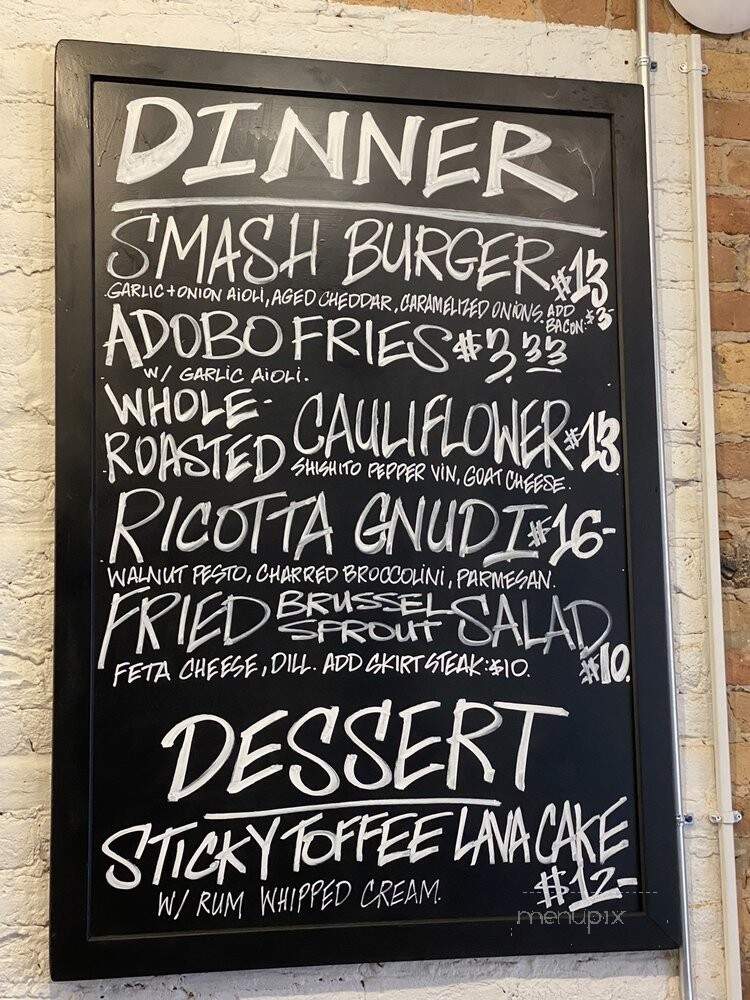 DINNER
SMASH BURGER $13
GARLIC + ONION AIOLI, AGED CHEDDAR, CARAMELIZED ONIONS. ADD
BACON: $3-
ADOBO FRIES $3.33
W/ GARLIC AIOLI.
WHOLE-
ROASTED CAULIFLOWER $13
SHISHITO PEPPER VIN, GOAT CHEESE.
RICOTTA GNUDI $16-
WALNUT PESTO, CHARRED BROCCOLINI, PARMESAN.
FRIED BRUSSEL SPROUT SALAD
$10.
FETA CHEESE, DILL. ADD SKIRT STEAK: $10.
DESSERT
STICKY TOFFEE LAVA CAKE
$12-
W/ RUM WHIPPED CREAM.
menupix